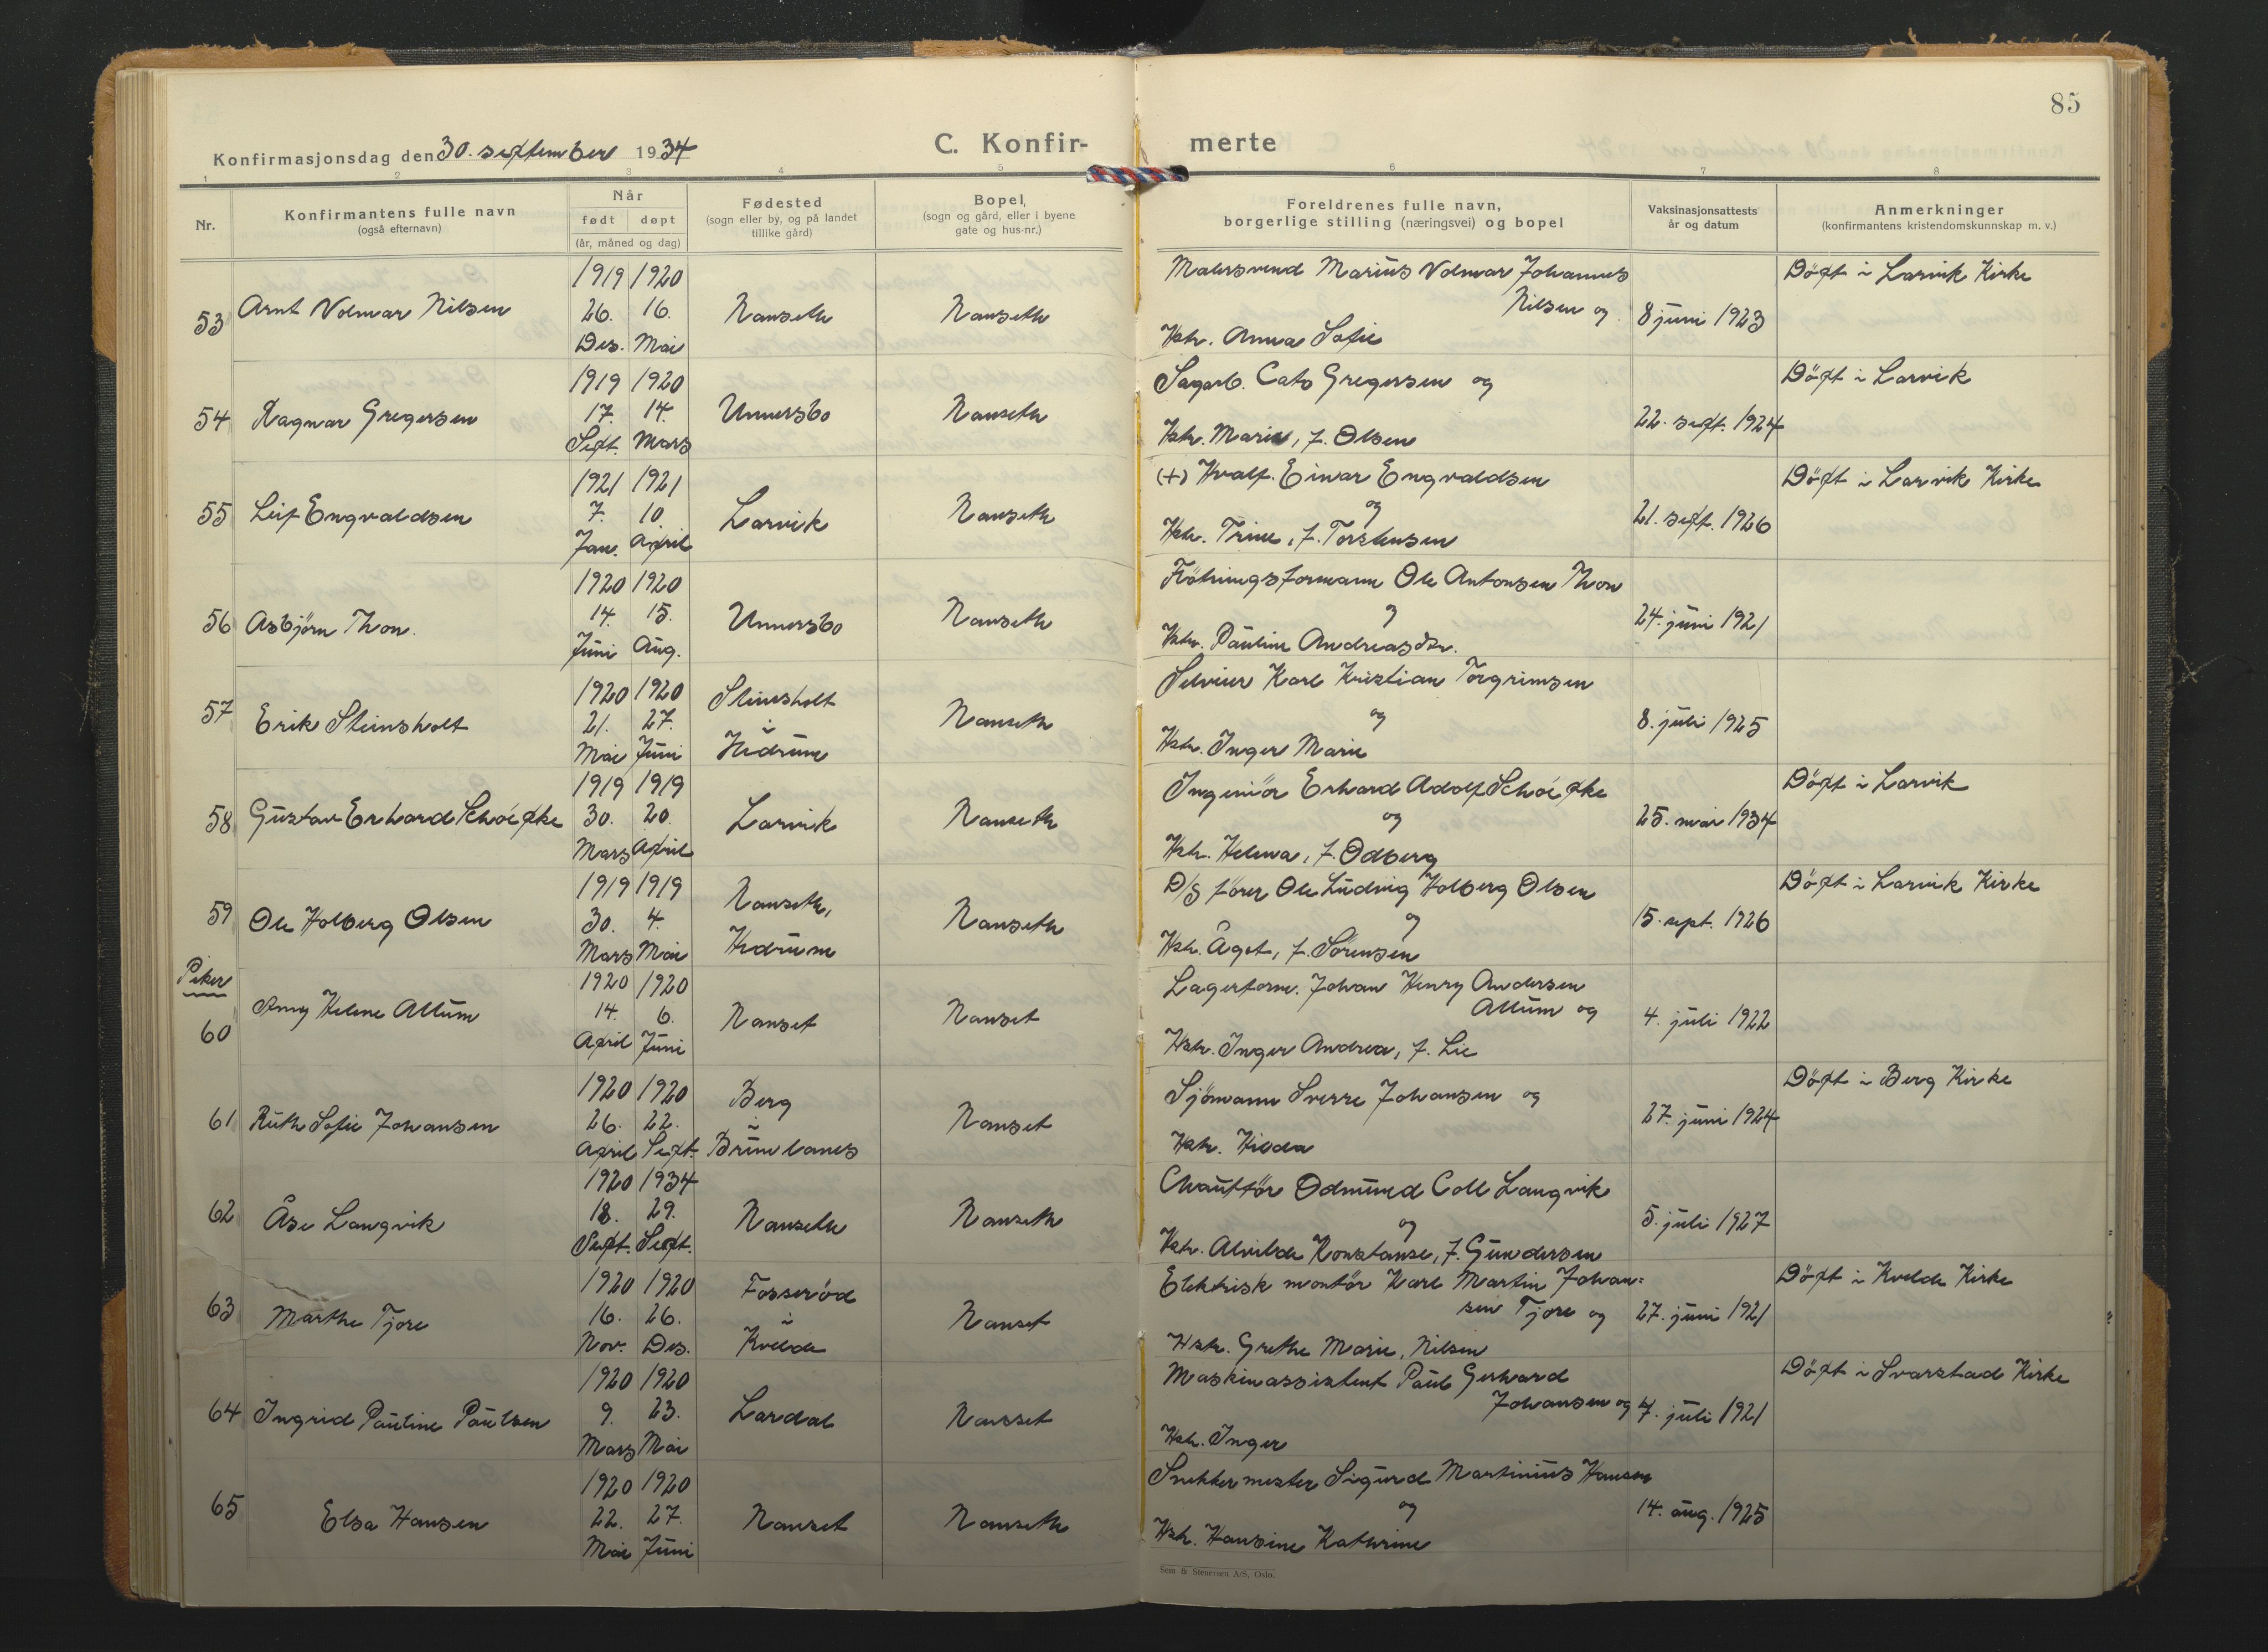 85
Konfirmasjonsdag den 30. september 1934
C. Konfir-
merte
1 2 3 4 5 6 7 8
Nr.
Konfirmantens fulle navn
(også efternavn)
Når
født døpt
(år, måned og dag)
Fødested
(sogn eller by, og på landet
tillike gård)
Bopel,
(sogn og gård, eller i byene
gate og hus-nr.)
Foreldrenes fulle navn,
borgerlige stilling (næringsvei) og bopel
Vaksinasjonsattests
år og datum
Anmerkninger
(konfirmantens kristendomskunnskap m. v.)
1919 1920 Malersvend Marius Volmar Johannes Döpt i Larvik Kirke
53 Arnt Volmar Nilsen 26. 16. Nanseth Nanseth Nilsen og 8 juni 1923
Des. Mai Hstr. Anna Sofie
1919 1920 Sagarb. Cato Gregersen og Döpt i Larvik
54 Ragnar Gregersen 17. 14. Unnersbo Nanseth 22. sept. 1924
Sept. Mars Hstr. Marie, f. Olsen
1921 1921 (+) Hvalf. Einar Engvaldsen Döpt i Larvik Kirke
55 Leif Engvaldsen 7. 10. Larvik Nanseth og 21. sept. 1926
Jan. April Hstr. Trine, f. Torstensen
1920 1920 Flötningsformann Ole Antonsen Thon
56 Asbjörn Thon. 14. 15. Unnersbo Nanseth og 24. juni 1921
Juni Aug. Hstr. Pauline Andreasdtr.
1920 1920 Steinsholt Selveier Karl Kristian Torgrimsen
57 Erik Steinsholt 21. 27. i Nanseth og 8. juli 1925
Mai Juni Hedrum Hstr. Inger Marie
1919 1919 Ingeniör Erhard Adolf Schöepke Döpt i Larvik
58 Gustav Erhard Schöepke 30. 20. Larvik Nanseth og 25. mai 1934
Mars April Hstr. Helena, f. Ödberg
1919 1919 Nanseth, D/S förer Ole Ludvig Holberg Olsen Döpt i Larvik Kirke
59 Ole Holberg Olsen 30. 4. Nanseth og 15. sept. 1926
Mars Mai Hedrum Hstr. Ågot, f. Sörensen
Piker
1920 1920 Lagerform. Johan Henry Andersen
60 Amy Helene Allum 14. 6. Nanset Nanset Allum og 4. juli 1922
April Juni Hstr. Inger Andrea, f. Lie
1920 1920 Berg Sjömann Sverre Johansen og Döpt i Berg Kirke
61 Ruth Sofie Johansen 26. 22. i Nanset 27. juni 1924
April Sept. Brunlanes Hstr. Hilda
1920 1934 Chaufför Odmund Coll Langvik
62 Åse Langvik 18. 29. Nanseth Nanseth og 5. juli 1927
Sept. Sept. Hstr. Alvilde Konstanse, f. Gundersen
1920 1920 Fosseröd Elektrisk montör Karl Martin Johan= Döpt i Kvelde Kirke
63 Marthe Tjore 16. 26. i Nanset sen Tjore og 27. juni 1921
Nov. Des. Kvelde Hstr. Grethe Marie, Nilsen
1920 1920 Maskinassistent Paul Gerhard Döpt i Svarstad Kirke
64 Ingrid Pauline Paulsen 9. 23. Lardal Nanset Johansen og 7. juli 1921
Mars Mai Hstr. Inger
1920 1920 Snekkermester Sigurd Martinius Hansen
65 Elsa Hansen 22. 27. Nanset Nanseth og 14. aug. 1925
Mai Juni Hstr. Hansine Kathrine
Sem & Stenersen A/S, Oslo.